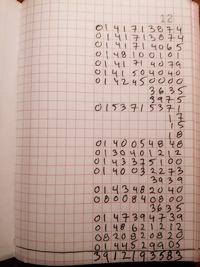 12
0141713874
0141713874
0141714065
0148100101
0141714079
0141504040
0142450000
3635
3975
0153715371
17
15
18
0140054848
0130401212
0143375100
0140032273
3939
0143482040
0800840800
3635
0147394739
0148621212
0820820820
0144529905
3912193583